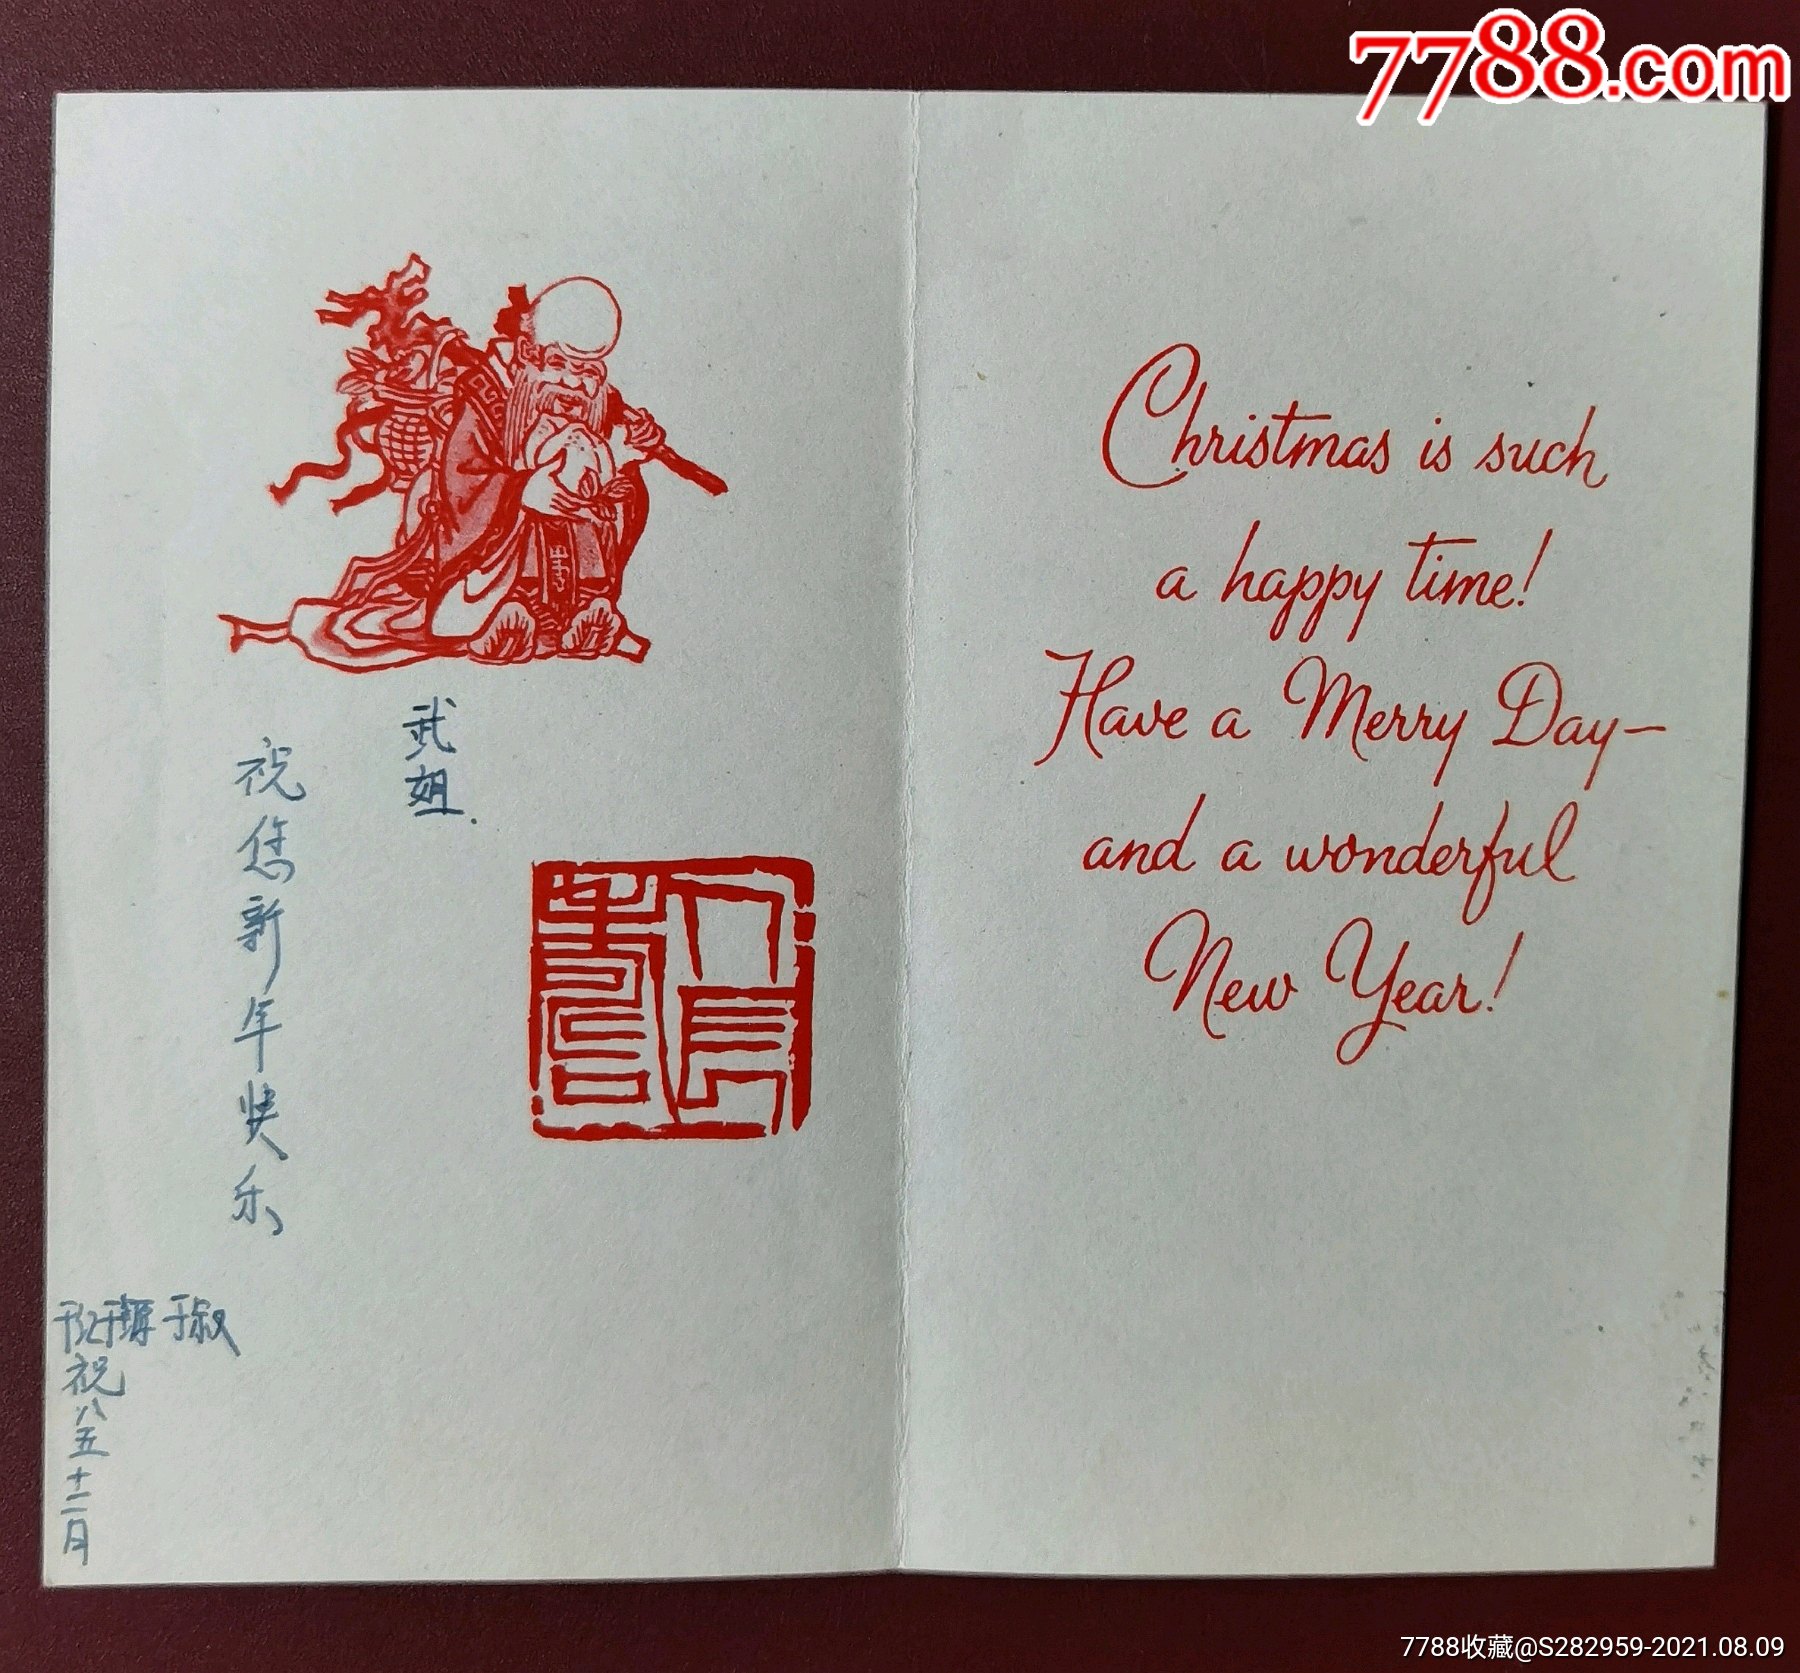 7788.com
武姐.
祝您新年快乐
祝
八五十二月
人長壽
Christmas is such
a happy time!
Have a Merry Day—
and a wonderful
New Year!
7788收藏@S282959-2021.08.09